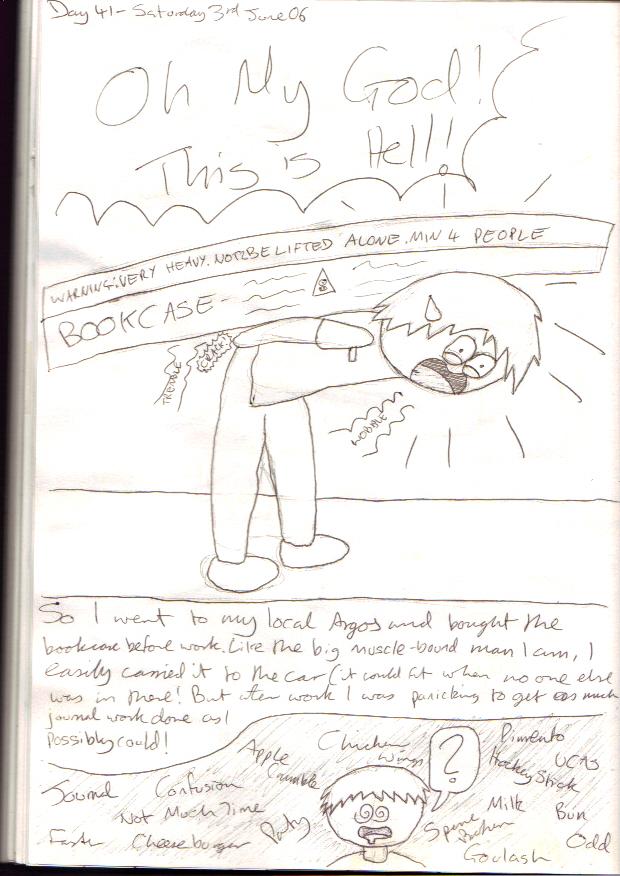 Day 41 - Saturday 3rd June 06
Oh My God!
This is Hell!!
WARNING: VERY HEAVY. NOT 2 BE LIFTED ALONE. MIN 4 PEOPLE
BOOKCASE
TREMBLE
CRACK!
WOBBLE
So I went to my local Argos and bought the
bookcase before work. Like the big muscle-bound man I am, I
easily carried it to the car (it could fit when no one else
was in there! But after work I was panicking to get as much
journal work done as I
possibly could!
?
Journal
Confusion
Apple
Crumble
Chicken
Wings
Pimento
Hockey Stick
UCAS
Not Much Time
Milk
Bun
Faster
Cheeseburger
Party
Spine
Broken
Goulash
Odd